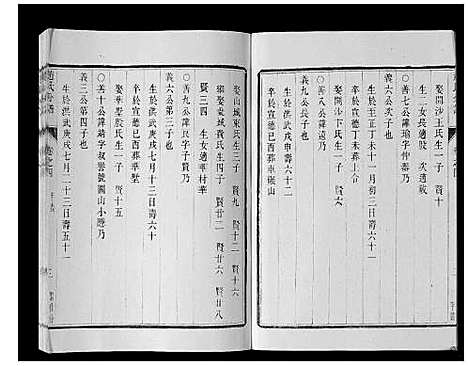 娶開沙王氏生一子 賢十
生二女長適殷 次適戴
○善七公諱瑜字仲器乃
義六公次子也
生於至正丁未十一月初三日壽六十
卒於宣德丁未葬上合
娶開沙丁氏生一子
○善八公諱
義九公長子也
生於洪武戊申
卒於宣德己酉葬車碾山
娶山城東氏生三子 賢九 賢十二 賢十六
繼娶黃墟黃氏生四子 賢廿二 賢廿六 賢廿八
賢三四 生女適華村華
○善九公諱良字子賢乃
義六公第三子也
生於洪武庚戌七月十三日壽六十
卒於宣德己酉葬華墅
娶華墅殷氏生一子 賢十五
○善十公諱靖字叔譽號圌山小隱乃
義三公第四子也
生於洪武庚戌七月二十三日壽五十一